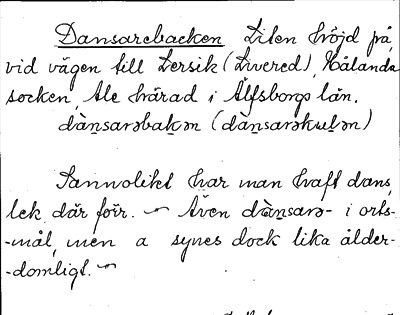 Dansarebacken Liten höjd på,
vid vägen till Lersik (Livered), Hålanda
socken, Ale härad i Älfsborgs län.
dàṉsarəbaḵəṉ (dàṉsarəkuḻəṉ)
Sannolikt har man haft dans,
lek där förr. — Även dàṉsarə- i orts-
-mål, men a synes dock lika ålder-
-domligt. —